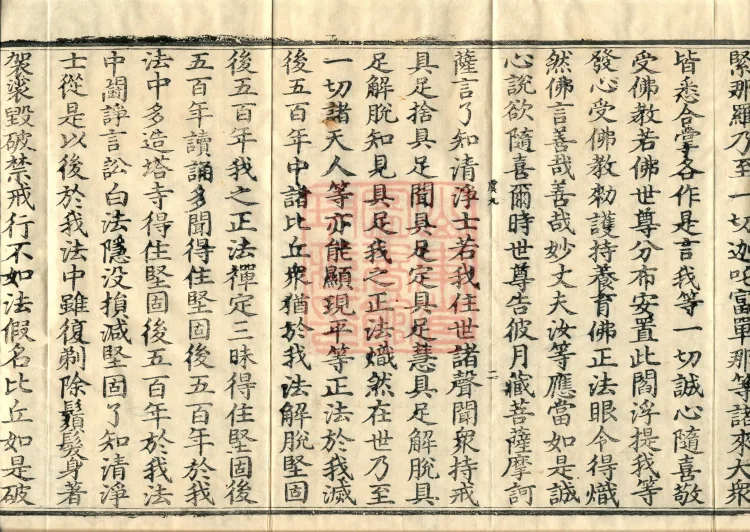 緊那羅乃至一切迦吒富單那等諸來大衆
皆悉合掌各作是言我等一切誠心隨喜敬
受佛教若佛世尊分布安置此閻浮提我等
發心受佛教勑護持養育佛正法眼令得熾
然佛言善哉善哉妙丈夫汝等應當如是誠
心說欲隨喜爾時世尊告彼月藏菩薩摩訶
虞九 二
薩言了知清淨士若我住世諸聲聞衆持戒
具足捨具足聞具足定具足慧具足解脫具
足解脫知見具足我之正法熾然在世乃至
一切諸天人等亦能顯現平等正法於我滅
後五百年中諸比丘衆猶於我法解脫堅固
後五百年我之正法禪定三昧得住堅固後
五百年讀誦多聞得住堅固後五百年於我
法中多造塔寺得住堅固後五百年於我法
中鬭諍言訟白法隱没損減堅固了知清淨
士從是以後於我法中雖復剃除鬚髮身著
袈裟毀破禁戒行不如法假名比丘如是破